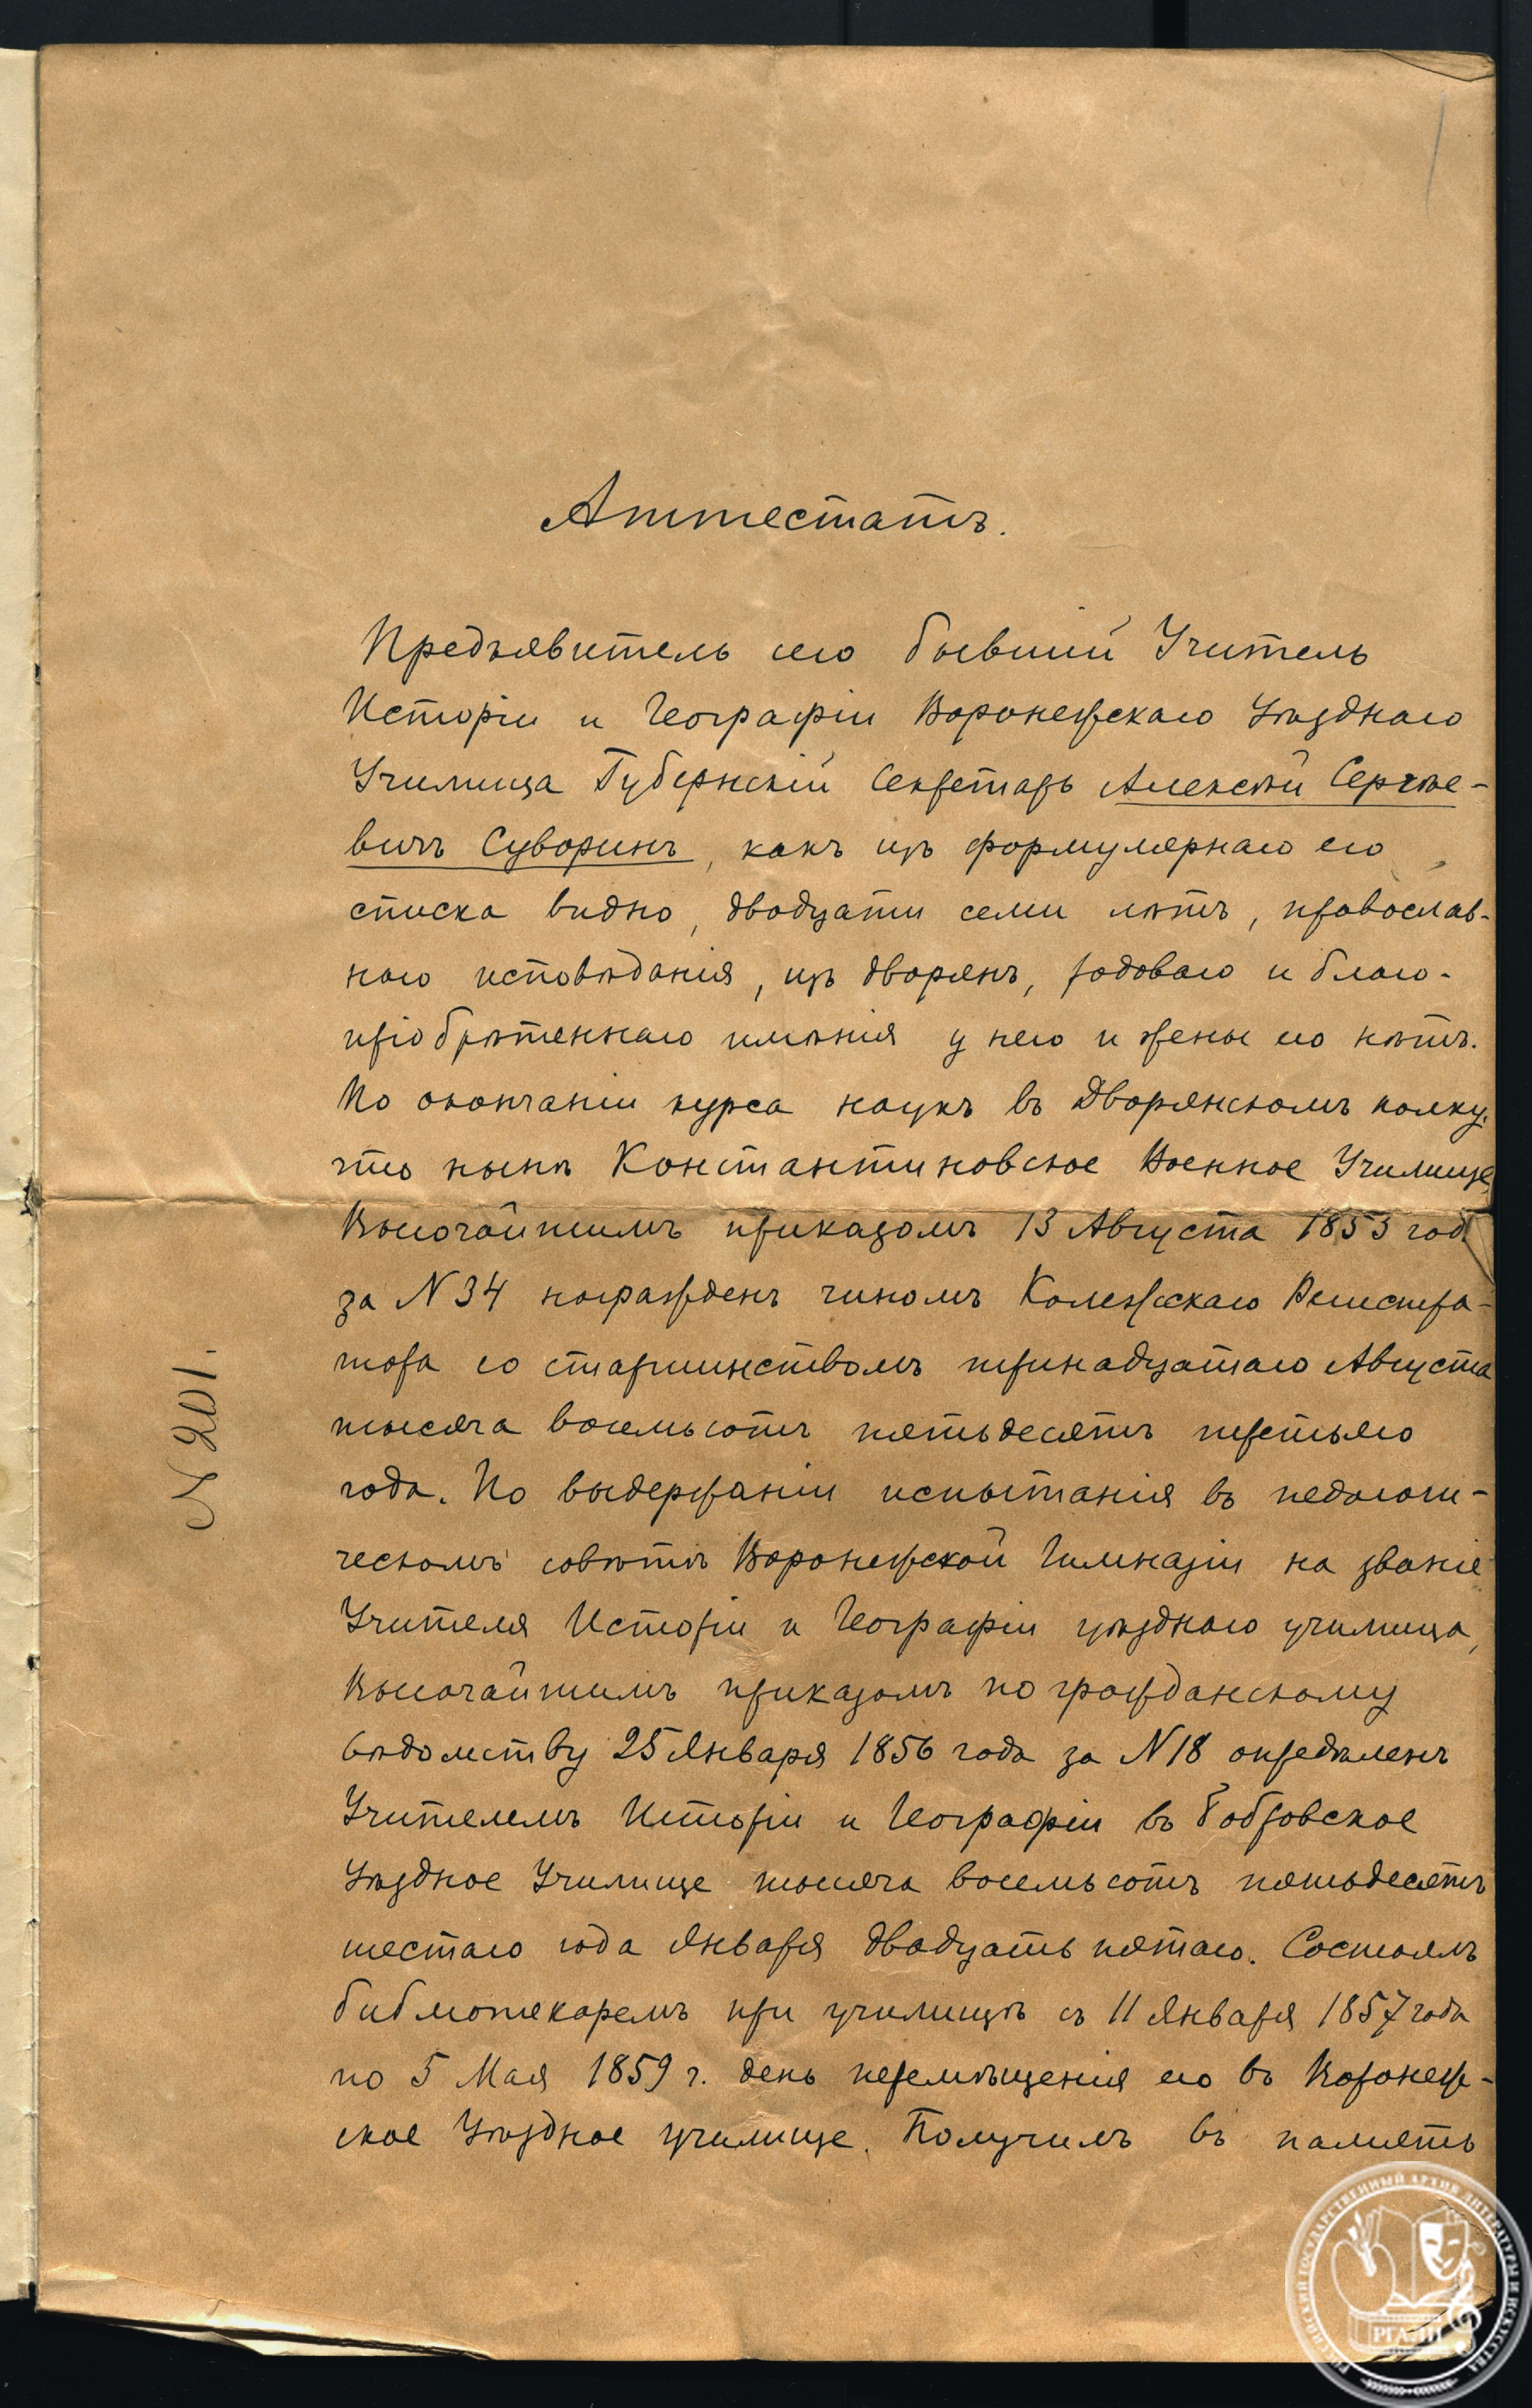 Аттестатъ.
Предъявитель сего бывшій Учитель
Исторіи и Географіи Воронежскаго Уѣзднаго
Училища Губернскій Секретарь Алексѣй Сергѣе-
вичъ Суворинъ, какъ изъ формулярнаго его
списка видно, двадцати семи лѣтъ, православ-
наго исповѣданія, изъ дворянъ, родоваго и благо-
пріобрѣтеннаго имѣнія у него и жены его нѣтъ.
По окончаніи курса наукъ въ Дворянскомъ полку,
что нынѣ Константиновское Военное Училище,
Высочайшимъ приказомъ 13 Августа 1853 год
за N 34 награжденъ чиномъ Колежскаго Регистра-
тора со старшинствомъ тринадцатаго Августа
тысяча восемьсотъ пятьдесятъ третьяго
года. По выдержаніи испытанія въ педагоги-
ческомъ совѣтѣ Воронежской Гимназіи на званіе
Учителя Исторіи и Географіи уѣзднаго училища,
Высочайшимъ приказомъ по гражданскому
вѣдомству 25 Января 1856 года за N 18 опредѣленъ
Учителемъ Исторіи и Географіи въ Бобровское
Уѣздное Училище тысяча восемьсотъ пятьдесятъ
шестаго года Января двадцать пятаго. Состоялъ
библіотекаремъ при училищѣ съ 11 Января 1857 года
по 5 Мая 1859 г. день перемѣщенія его въ Воронеж-
ское Уѣздное училище. Получилъ въ память
N 201.
РОССИЙСКИЙ ГОСУДАРСТВЕННЫЙ АРХИВ ЛИТЕРАТУРЫ И ИСКУССТВА
РГАЛИ